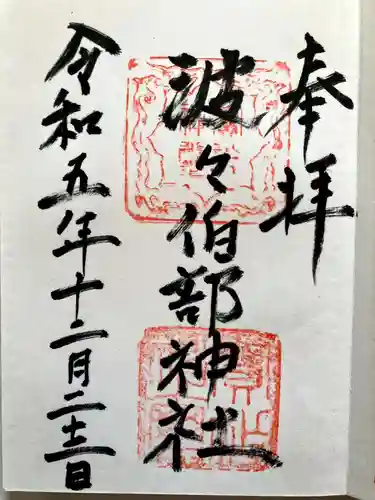 奉拝
波々伯部神社
令和五年十二月二十三日